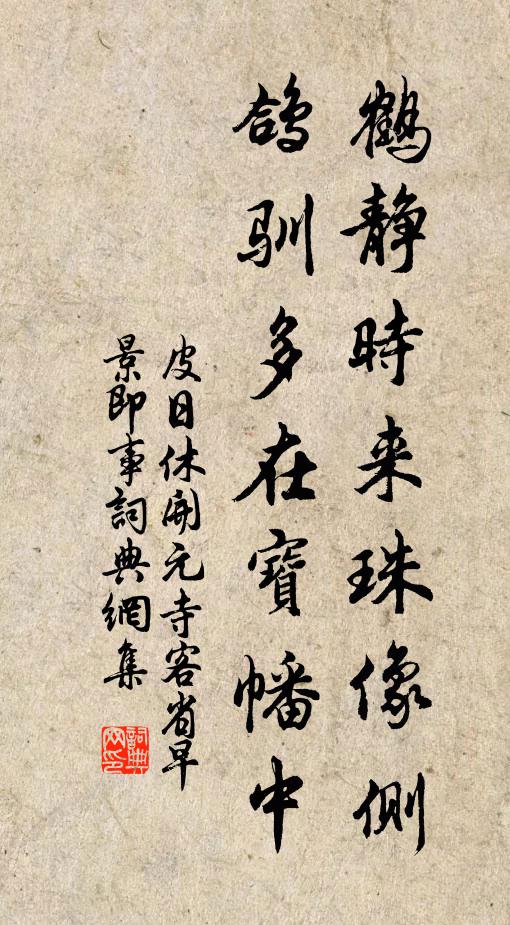 鶴静時来珠像側
鴿馴多在寶幡中
皮日休開元寺客省早
景即事詞典網集
詞典网印